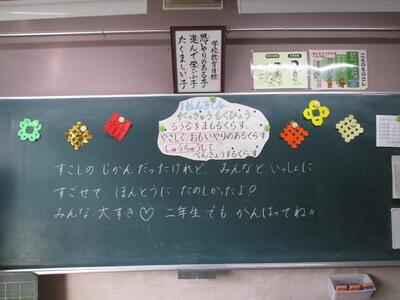 学校教育目標
思いやりのある子
進んで学ぶ子
たくましい子
1ねん2くみ
がっきゅうもくひょう
るうるをまもるくらす
やさしく、おもいやりのあるくらす
しゅうちゅうして、
べんきょうするくらす
すこしの じかんだったけれど、みんなと いっしょに
すごせて、ほんとうに たのしかったよ!
みんな 大すき♡ 二年生でも がんばってね!!